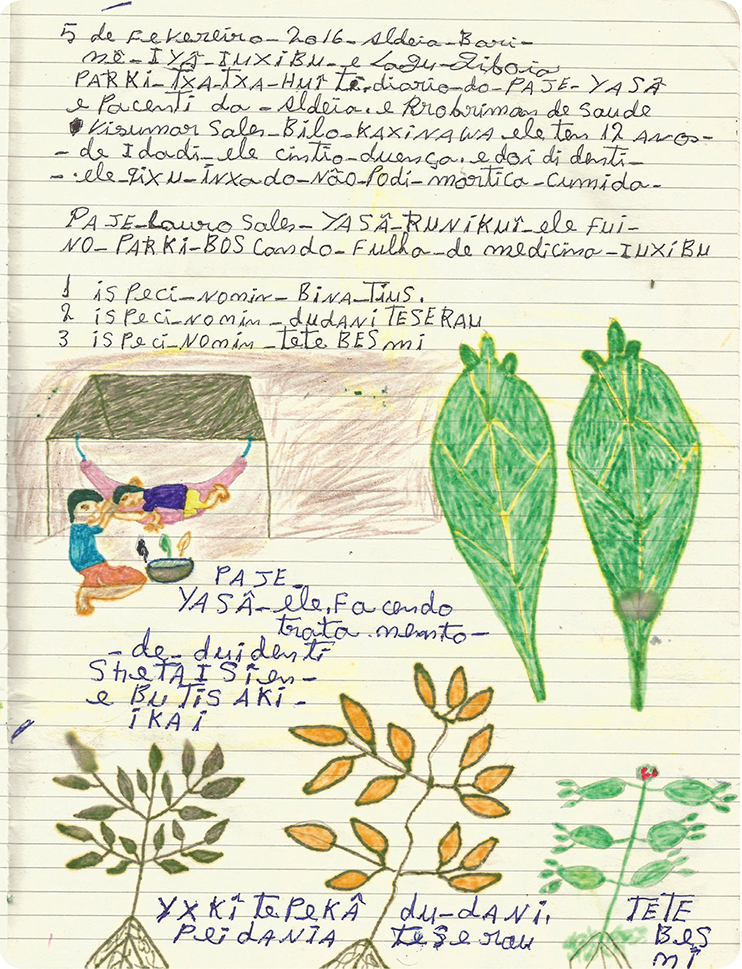 5 de Fevereiro-2016-Aldeia-Bari-
nê-IYÂ-IUXIBU-e Lagu-Jiboia
PARKi-TXATXA-HUÎ Ti.diario-do-PAJE-YASÃ
e Pacenti da-Aldeia.e Rrobriman de saude
Visumar Sales-Bilo-KAXINAWA.ele ten 12 anos-
-de Idadi-ele cintio-duença.e doi di denti-
-.ele Qixu-inxado-Não-Podi-mortica-Cumida-
PAJE-Lauro Sales-YASÃ-RUNiKUÎ-ele fui-
NO-PARKi-BOS Cando-Fulha-de medicina-IUXIBU
1 isPeci-nomin-BiNA-Tius.
2 isPeci-nomin-dudANi TESERAU
3 isPeci-Nomin-tete BESmi
PAJE-
YASÂ-ele.Facendo
trata mento-
-de-duidenti
SheTA I Sîen-
e BuTiS AKi-
iKAi
YXKÎ tePEKÂ
PEi dANiA
du-dANi.
teserau
TETE
BES
mi